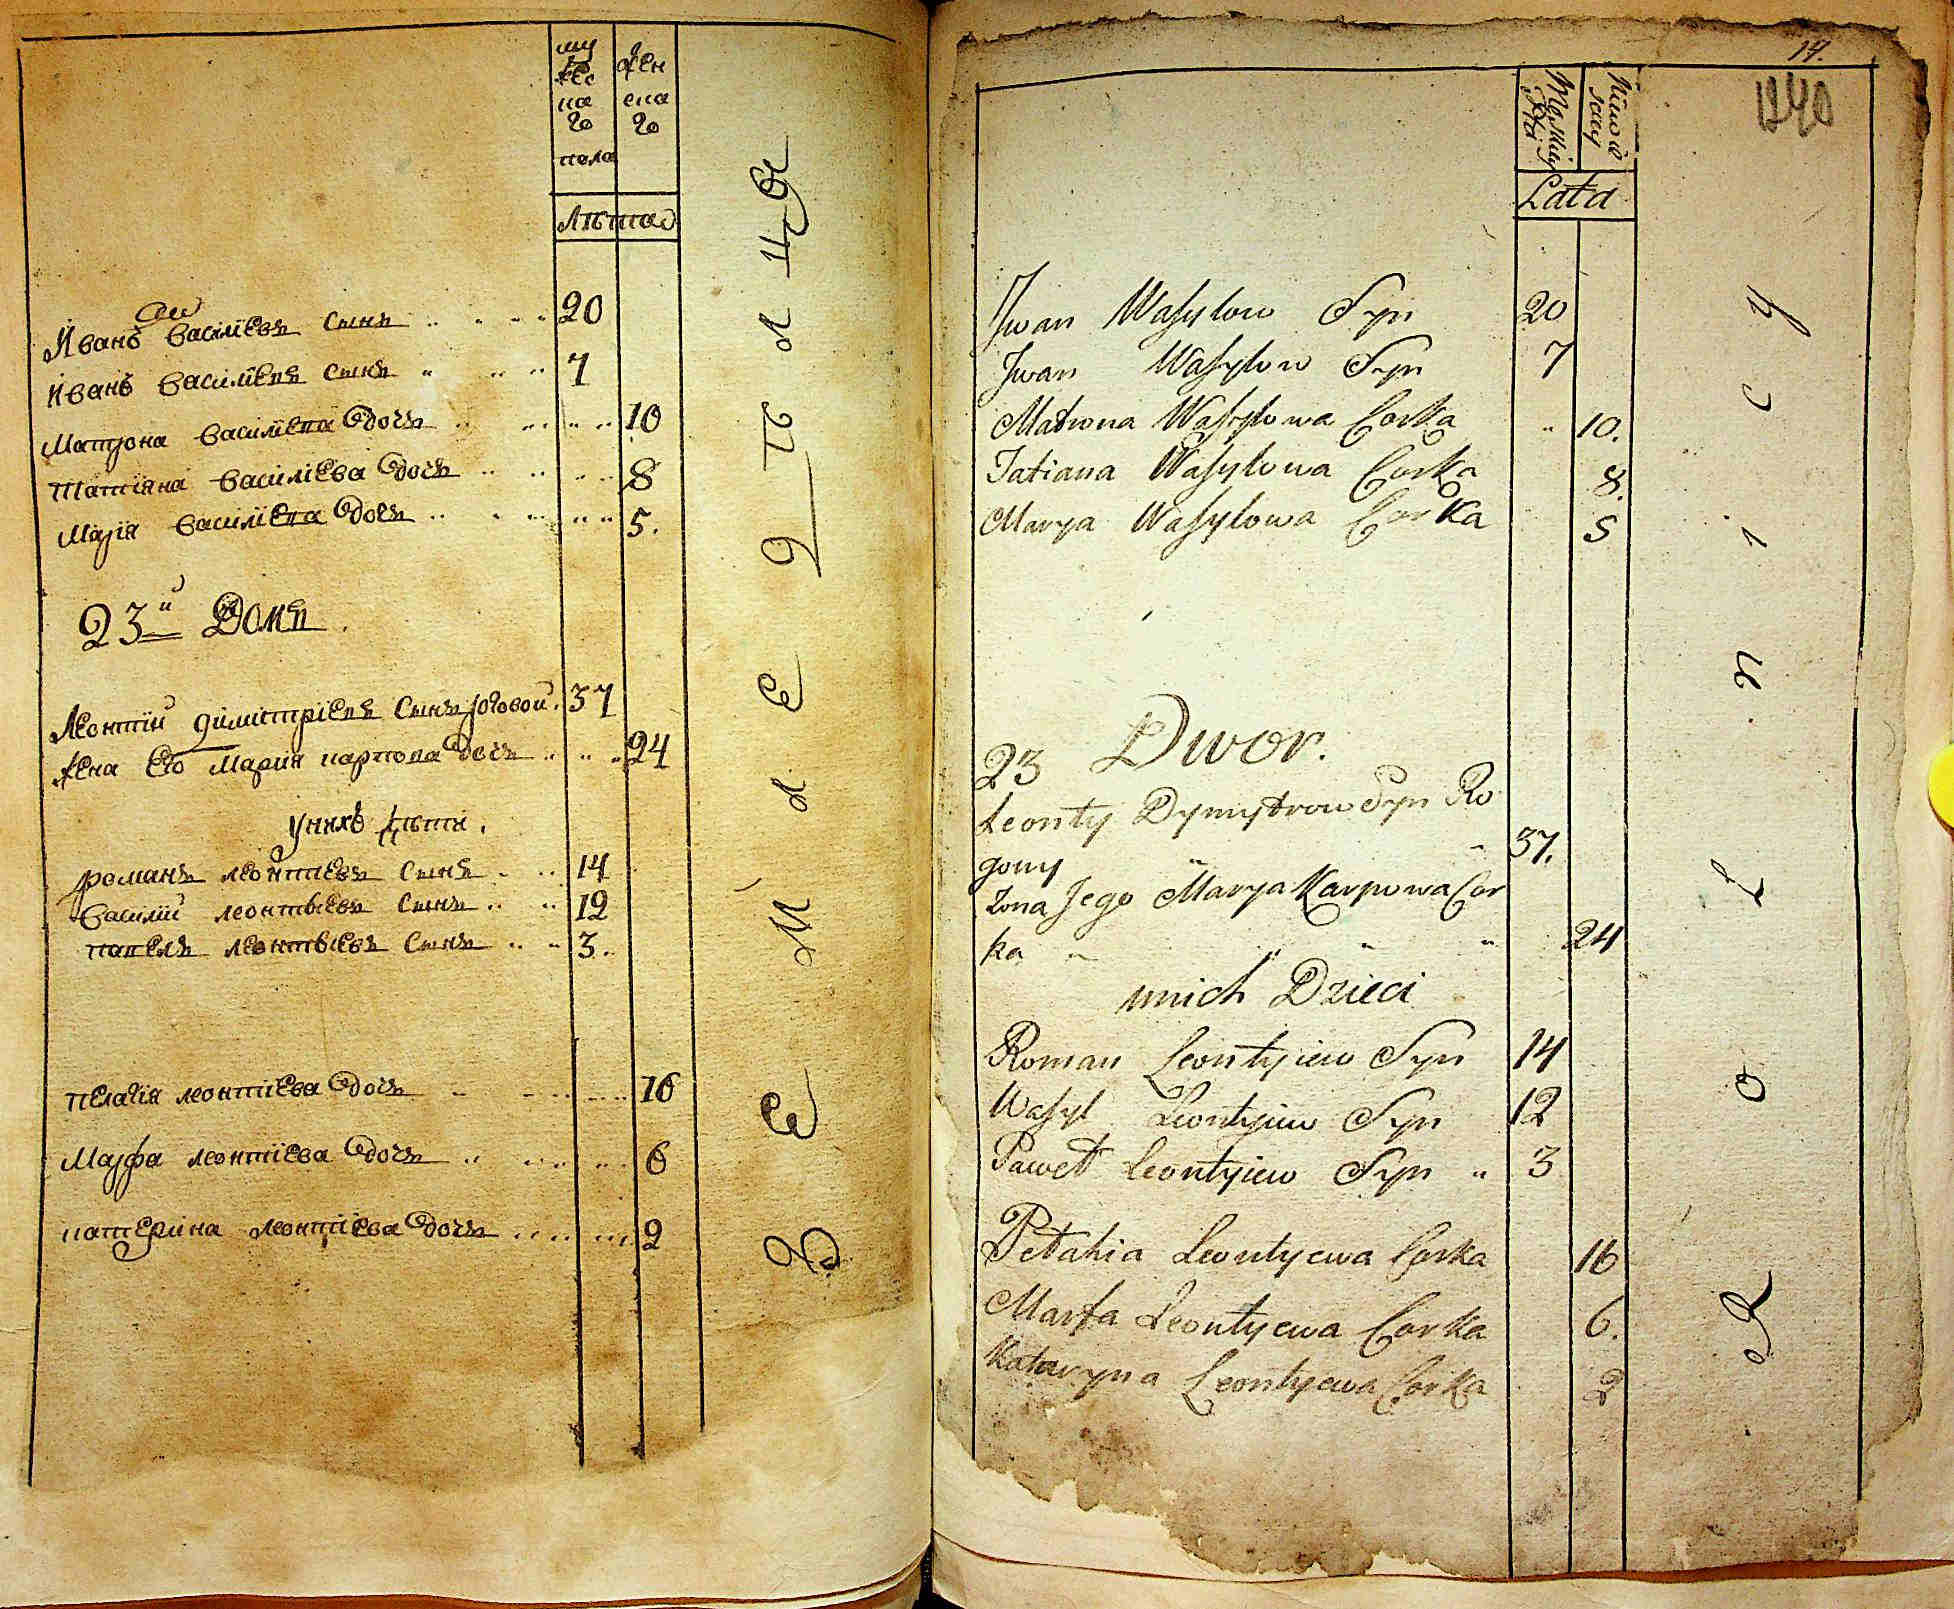 му
жес
ка
го
пола
жен
ска
го
Лѣта
Иванъ Василіевъ сынъ 20
Иванъ Василіевъ сынъ 7
Матрона Василіева дочь 10
Татіяна Василіева дочь 8
Марія Василіева дочь 5.
23й Домъ.
Леонтій Димитріевъ сынъ роговой. 37
Жена Его Марія карпова дочь 24
у нихъ дѣти.
романъ леонтіевъ сынъ 14
Василій леонтьевъ сынъ 12
павелъ леонтьевъ сынъ 3.
пелагія леонтіева дочь 16
Марфа леонтіева дочь 6
катерина леонтіева дочь 2
Земледѣлцы
14.
1240
Lata
Jwan Wasylow Syn 20
Jwan Wasylow Syn 7
Matrona Wasylowa Corka 10.
Tatiana Wasylowa Corka 8.
Marya Wasylowa Corka 5
23 Dwor.
Leonty Dymytrow Syn Ro
gowy 37.
Zona Jego Marya Karpowa Cor
ka 24
unich Dzieci
Roman Leontyiew Syn 14
Wasyl Leontyiew Syn 12
Paweł Leontyiew Syn 3
Pełahia Leontyewa Corka 16
Marfa Leontyewa Corka 6.
Kataryna Leontyewa Corka 2
Rolnicy